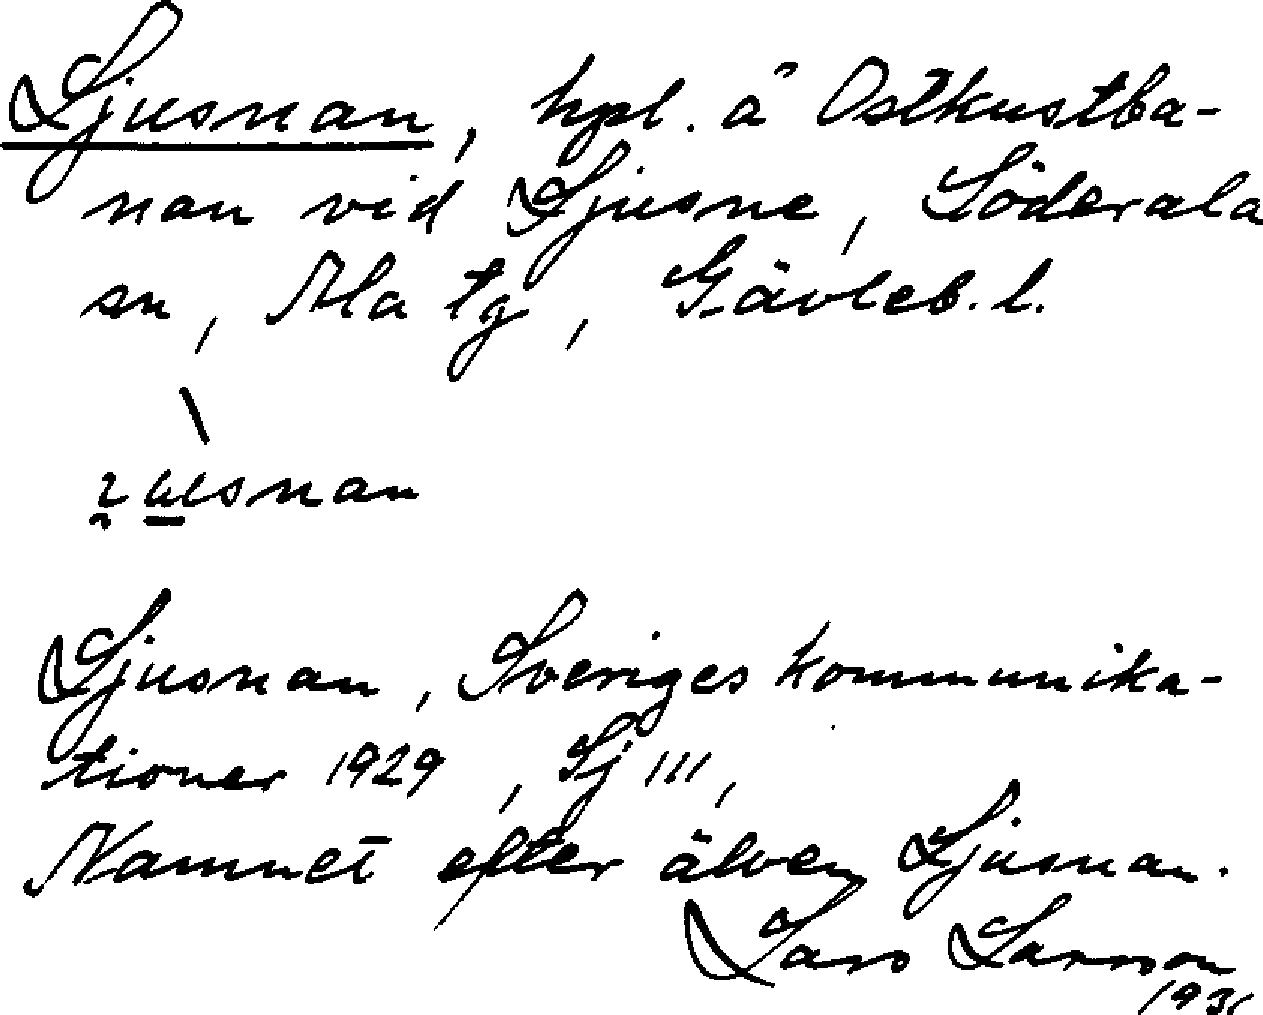 Ljusnan, hpl. å Ostkustba-
nan vid Ljusne, Söderala
sn, Ala tg, Gävleb. l.
Ljusnan, Sveriges kommunika-
tioner 1929, Sj 111,
Namnet efter älven Ljusnan.
Lars Larsson
1931